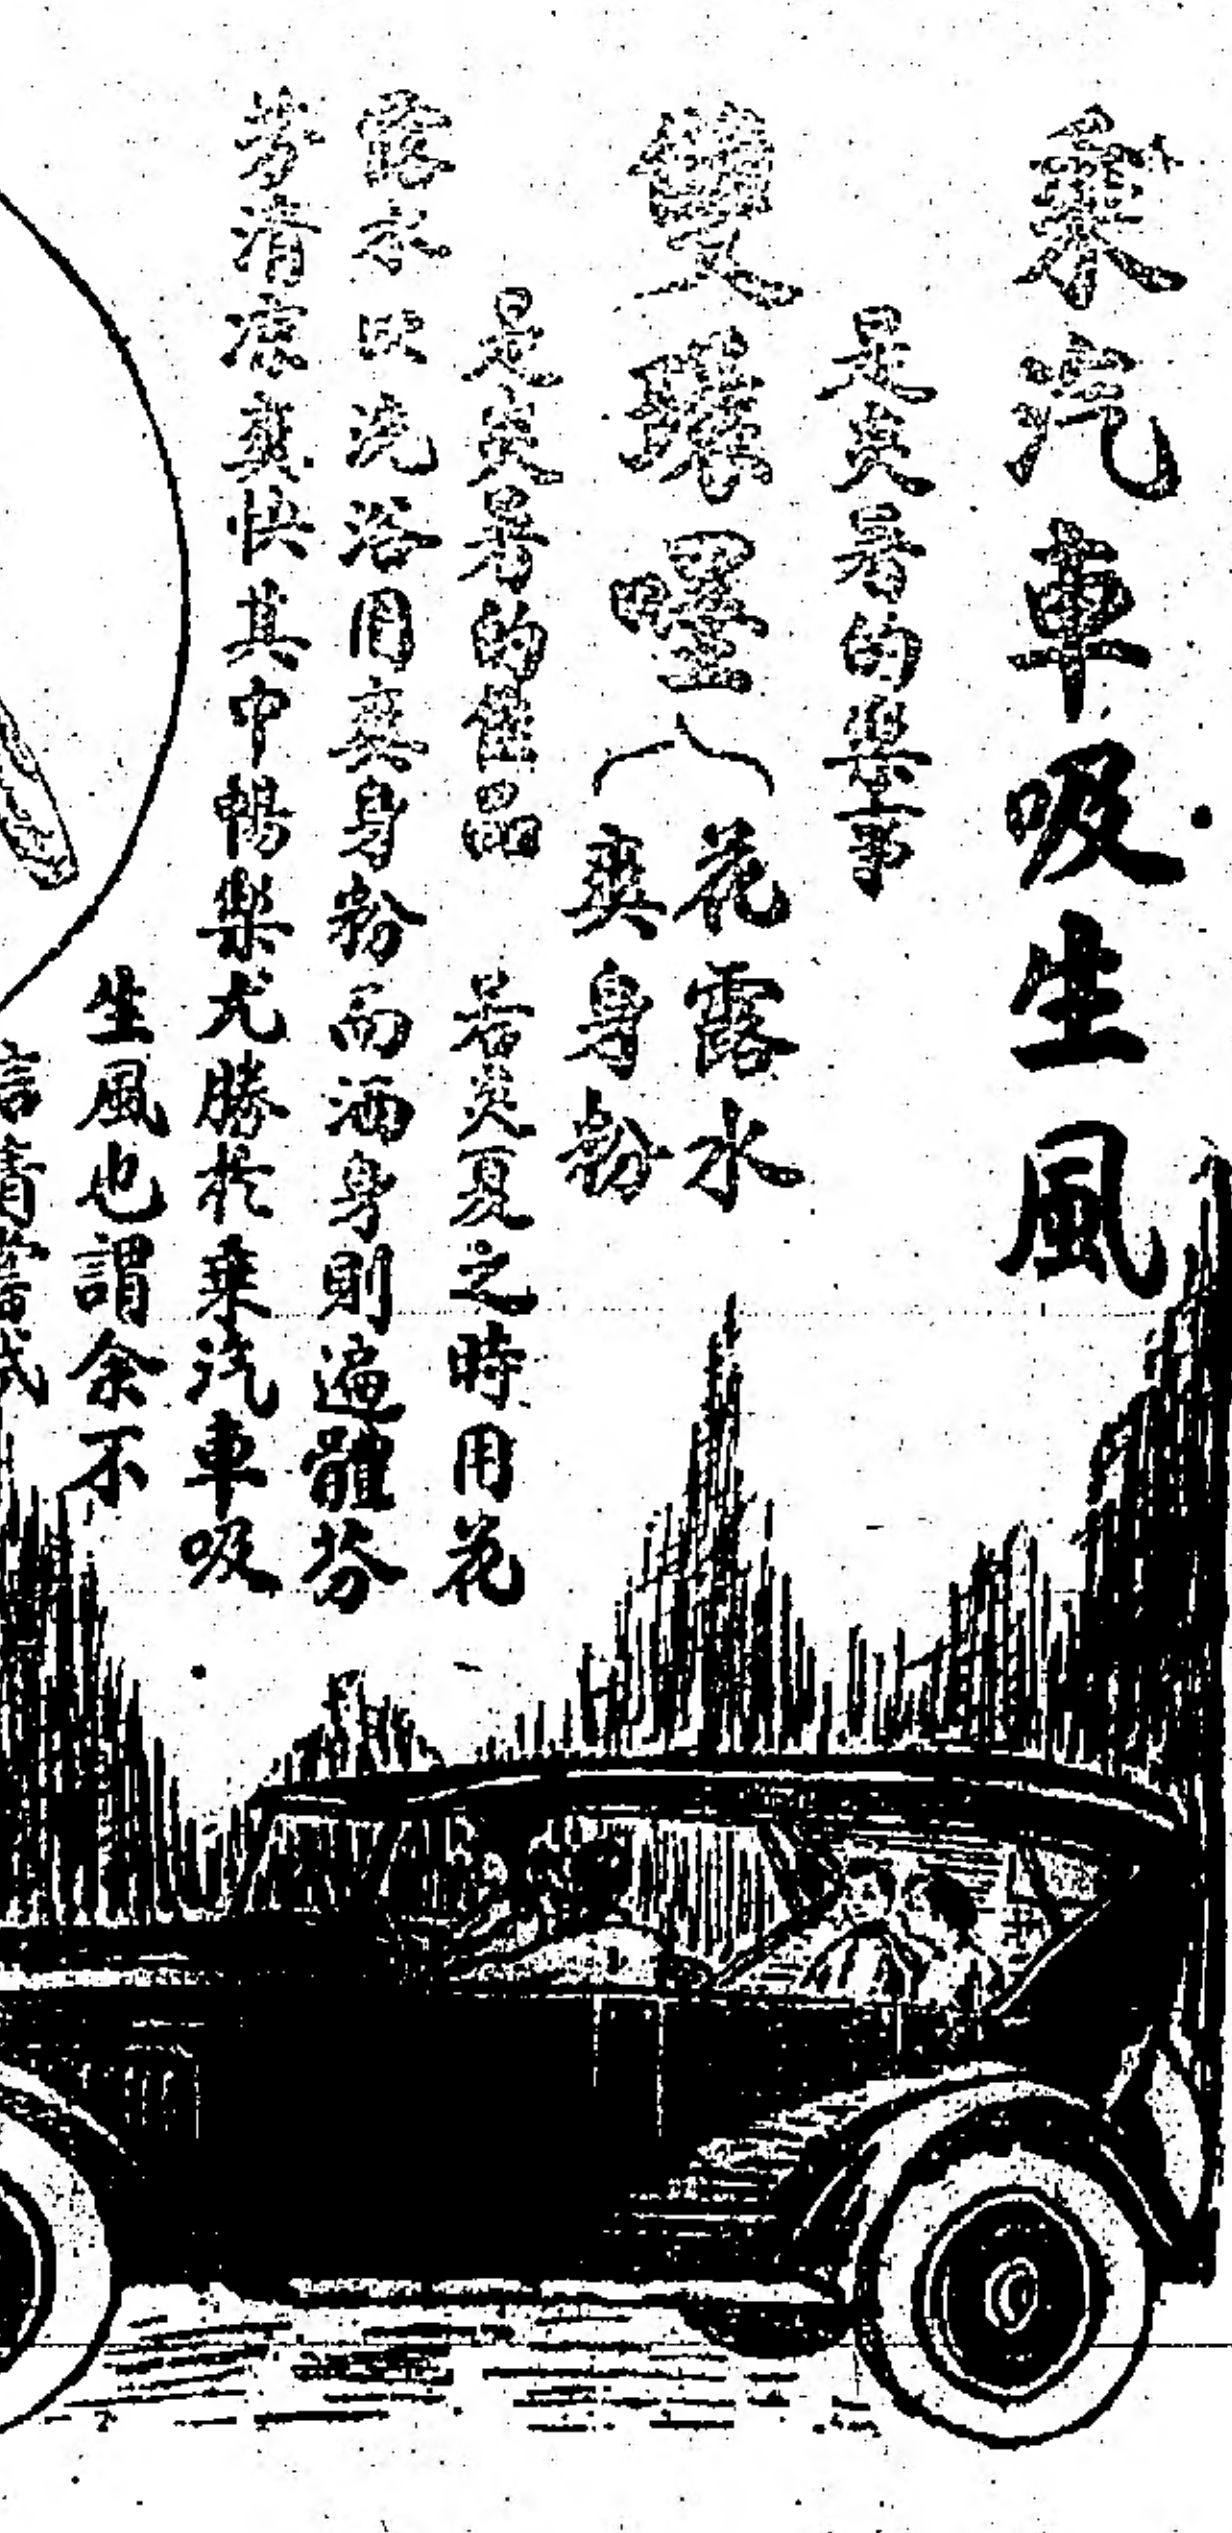 乘汽車吸生風
是炎暑的樂事
雙嚜
花露水
爽身粉
是炎暑的佳品 若炎夏之時用花
露水以洗浴用爽身粉而洒身則遍體芬
芳清凉爽快其中暢樂尤勝於乘汽車吸
生風也謂余不
信請嘗試